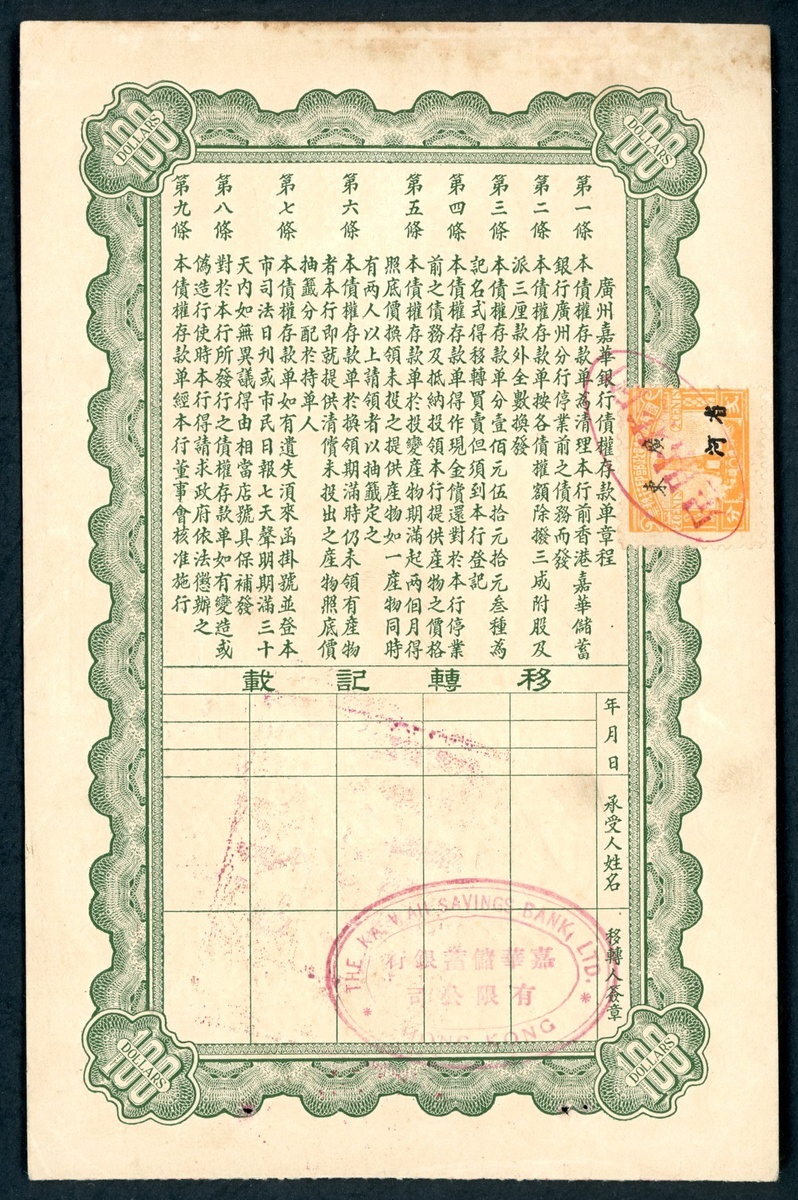 100
DOLLARS
100
DOLLARS
廣州嘉華銀行債權存款單章程
第一條 本債權存款單為清理本行前香港嘉華儲蓄
銀行廣州分行停業前之債務而發
第二條 本債權存款單按各債權額除撥三成附股及
派三厘款外全數換發
第三條 本債權存款單分壹佰元伍拾元拾元叁種為
記名式得移轉買賣但須到本行登記
第四條 本債權存款單得作現金償還對於本行停業
前之債務及抵納投領本行提供產物之價格
第五條 本債權存款單於投變產物期滿起兩個月得
照底價換領未投之提供產物如一產物同時
有兩人以上請領者以抽籤定之
第六條 本債權存款單於換領期滿時仍未領有產物
者本行即就提供清償未投出之產物照底價
抽籤分配於持單人
第七條 本債權存款單如有遺失須來函掛號並登本
市司法日刊或市民日報七天聲明期滿三十
天內如無異議得由相當店號具保補發
第八條 對於本行所發行之債權存款單如有變造或
偽造行使時本行得請求政府依法懲辦之
第九條 本債權存款單經本行董事會核准施行
移轉記載
年月日
承受人姓名
移轉人簽章
THE KA WAH SAVINGS BANK, LTD.
嘉華儲蓄銀行
有限公司
HONG KONG
廣東
100
DOLLARS
100
DOLLARS